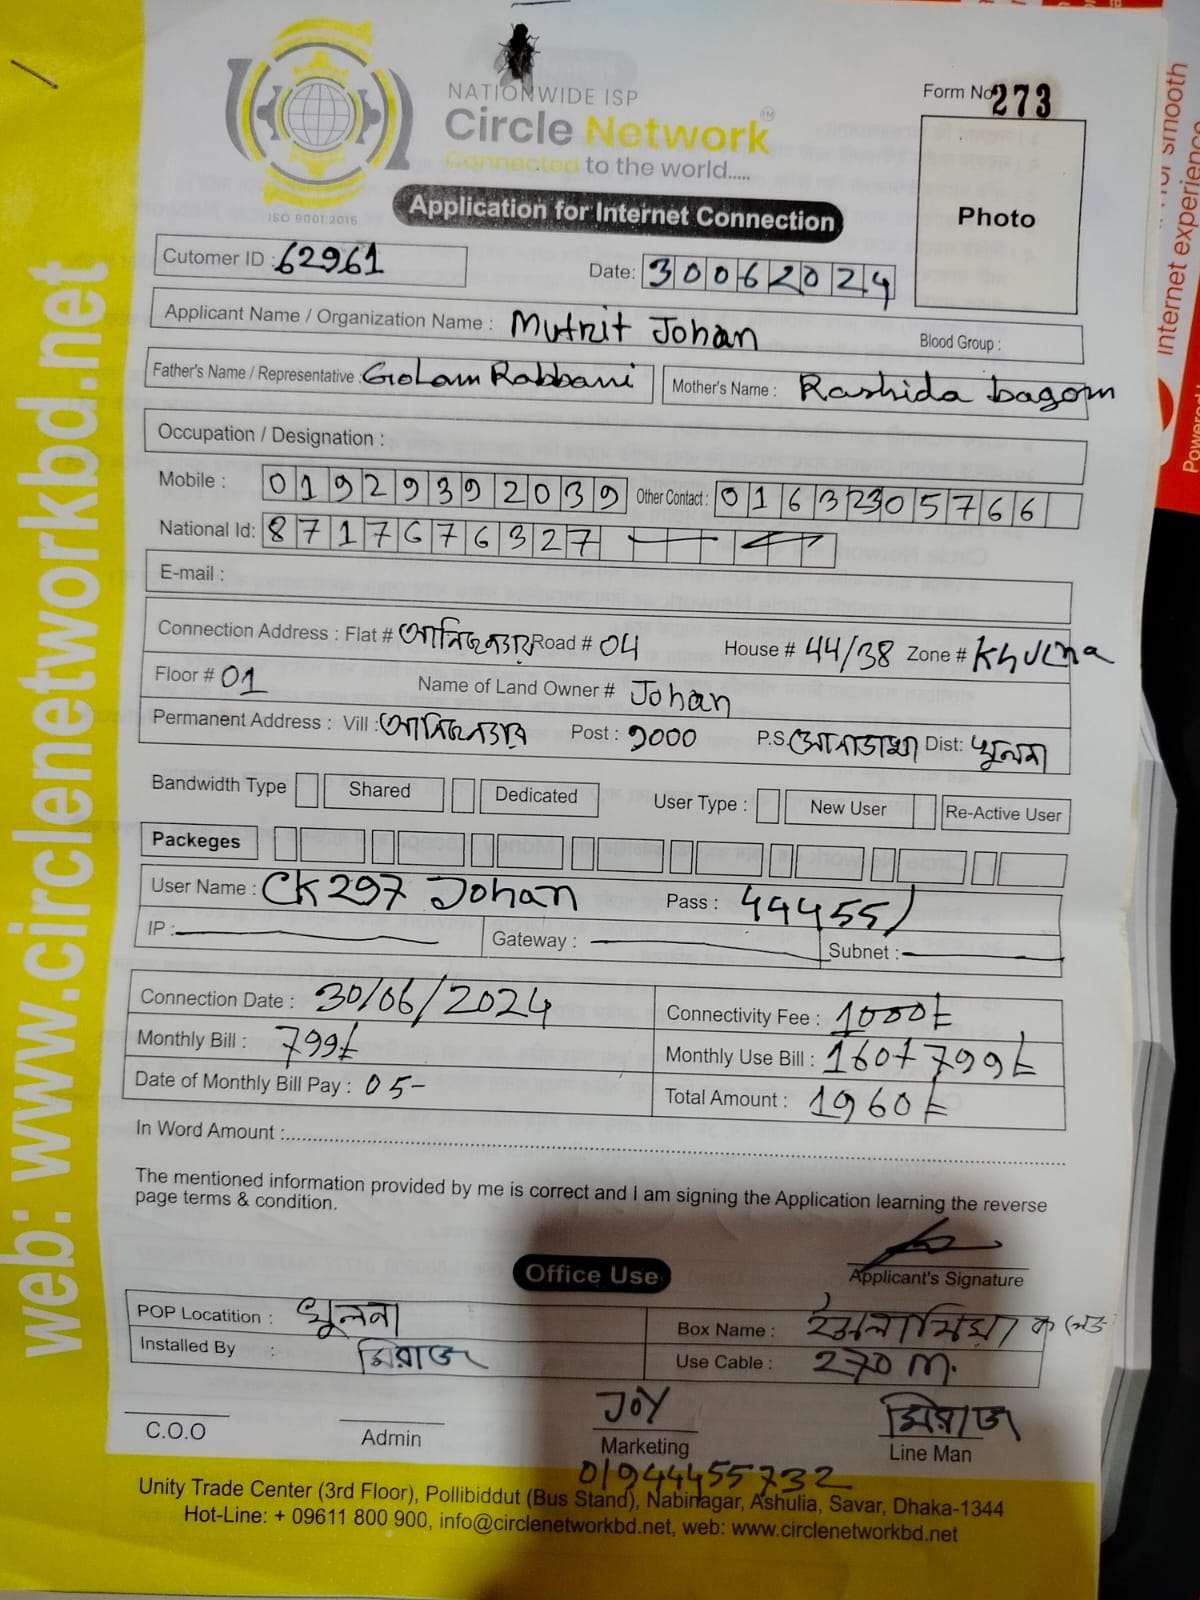 NATIONWIDE ISP
Form No 273
Circle Network
Connected to the world.....
ISO 9001:2015
Application for Internet Connection
Photo
Cutomer ID : 62961 Date: 30062024
Applicant Name / Organization Name : Mutnit Johan Blood Group :
Father's Name / Representative : Golam Rabbani Mother's Name : Rashida bagom
Occupation / Designation :
Mobile : 01929392039 Other Contact : 01632305766
National Id: 8717676327
E-mail :
Connection Address : Flat # Road # 04 House # 44/38 Zone # Khulna
Floor # 01 Name of Land Owner # Johan
Permanent Address : Vill : Post : 9000 P.S. সোনাডাঙ্গা Dist: খুলনা
Bandwidth Type Shared Dedicated User Type : New User Re-Active User
Packeges
User Name : CK297 Johan Pass : 444555
IP : Gateway : Subnet :
Connection Date : 30/06/2024 Connectivity Fee : 1000৳
Monthly Bill : 799৳ Monthly Use Bill : 160+799৳
Date of Monthly Bill Pay : 05- Total Amount : 1960৳
In Word Amount :
The mentioned information provided by me is correct and I am signing the Application learning the reverse
page terms & condition.
Office Use
Applicant's Signature
POP Locatition : খুলনা Box Name : ইসলামিয়া কলেজ
Installed By : মিরাজ Use Cable : 270 m.
JOY মিরাজ
C.O.O Admin Marketing Line Man
01944455732
Unity Trade Center (3rd Floor), Pollibiddut (Bus Stand), Nabinagar, Ashulia, Savar, Dhaka-1344
Hot-Line: + 09611 800 900, info@circlenetworkbd.net, web: www.circlenetworkbd.net
web: www.circlenetworkbd.net
for smooth
internet experience
Powered